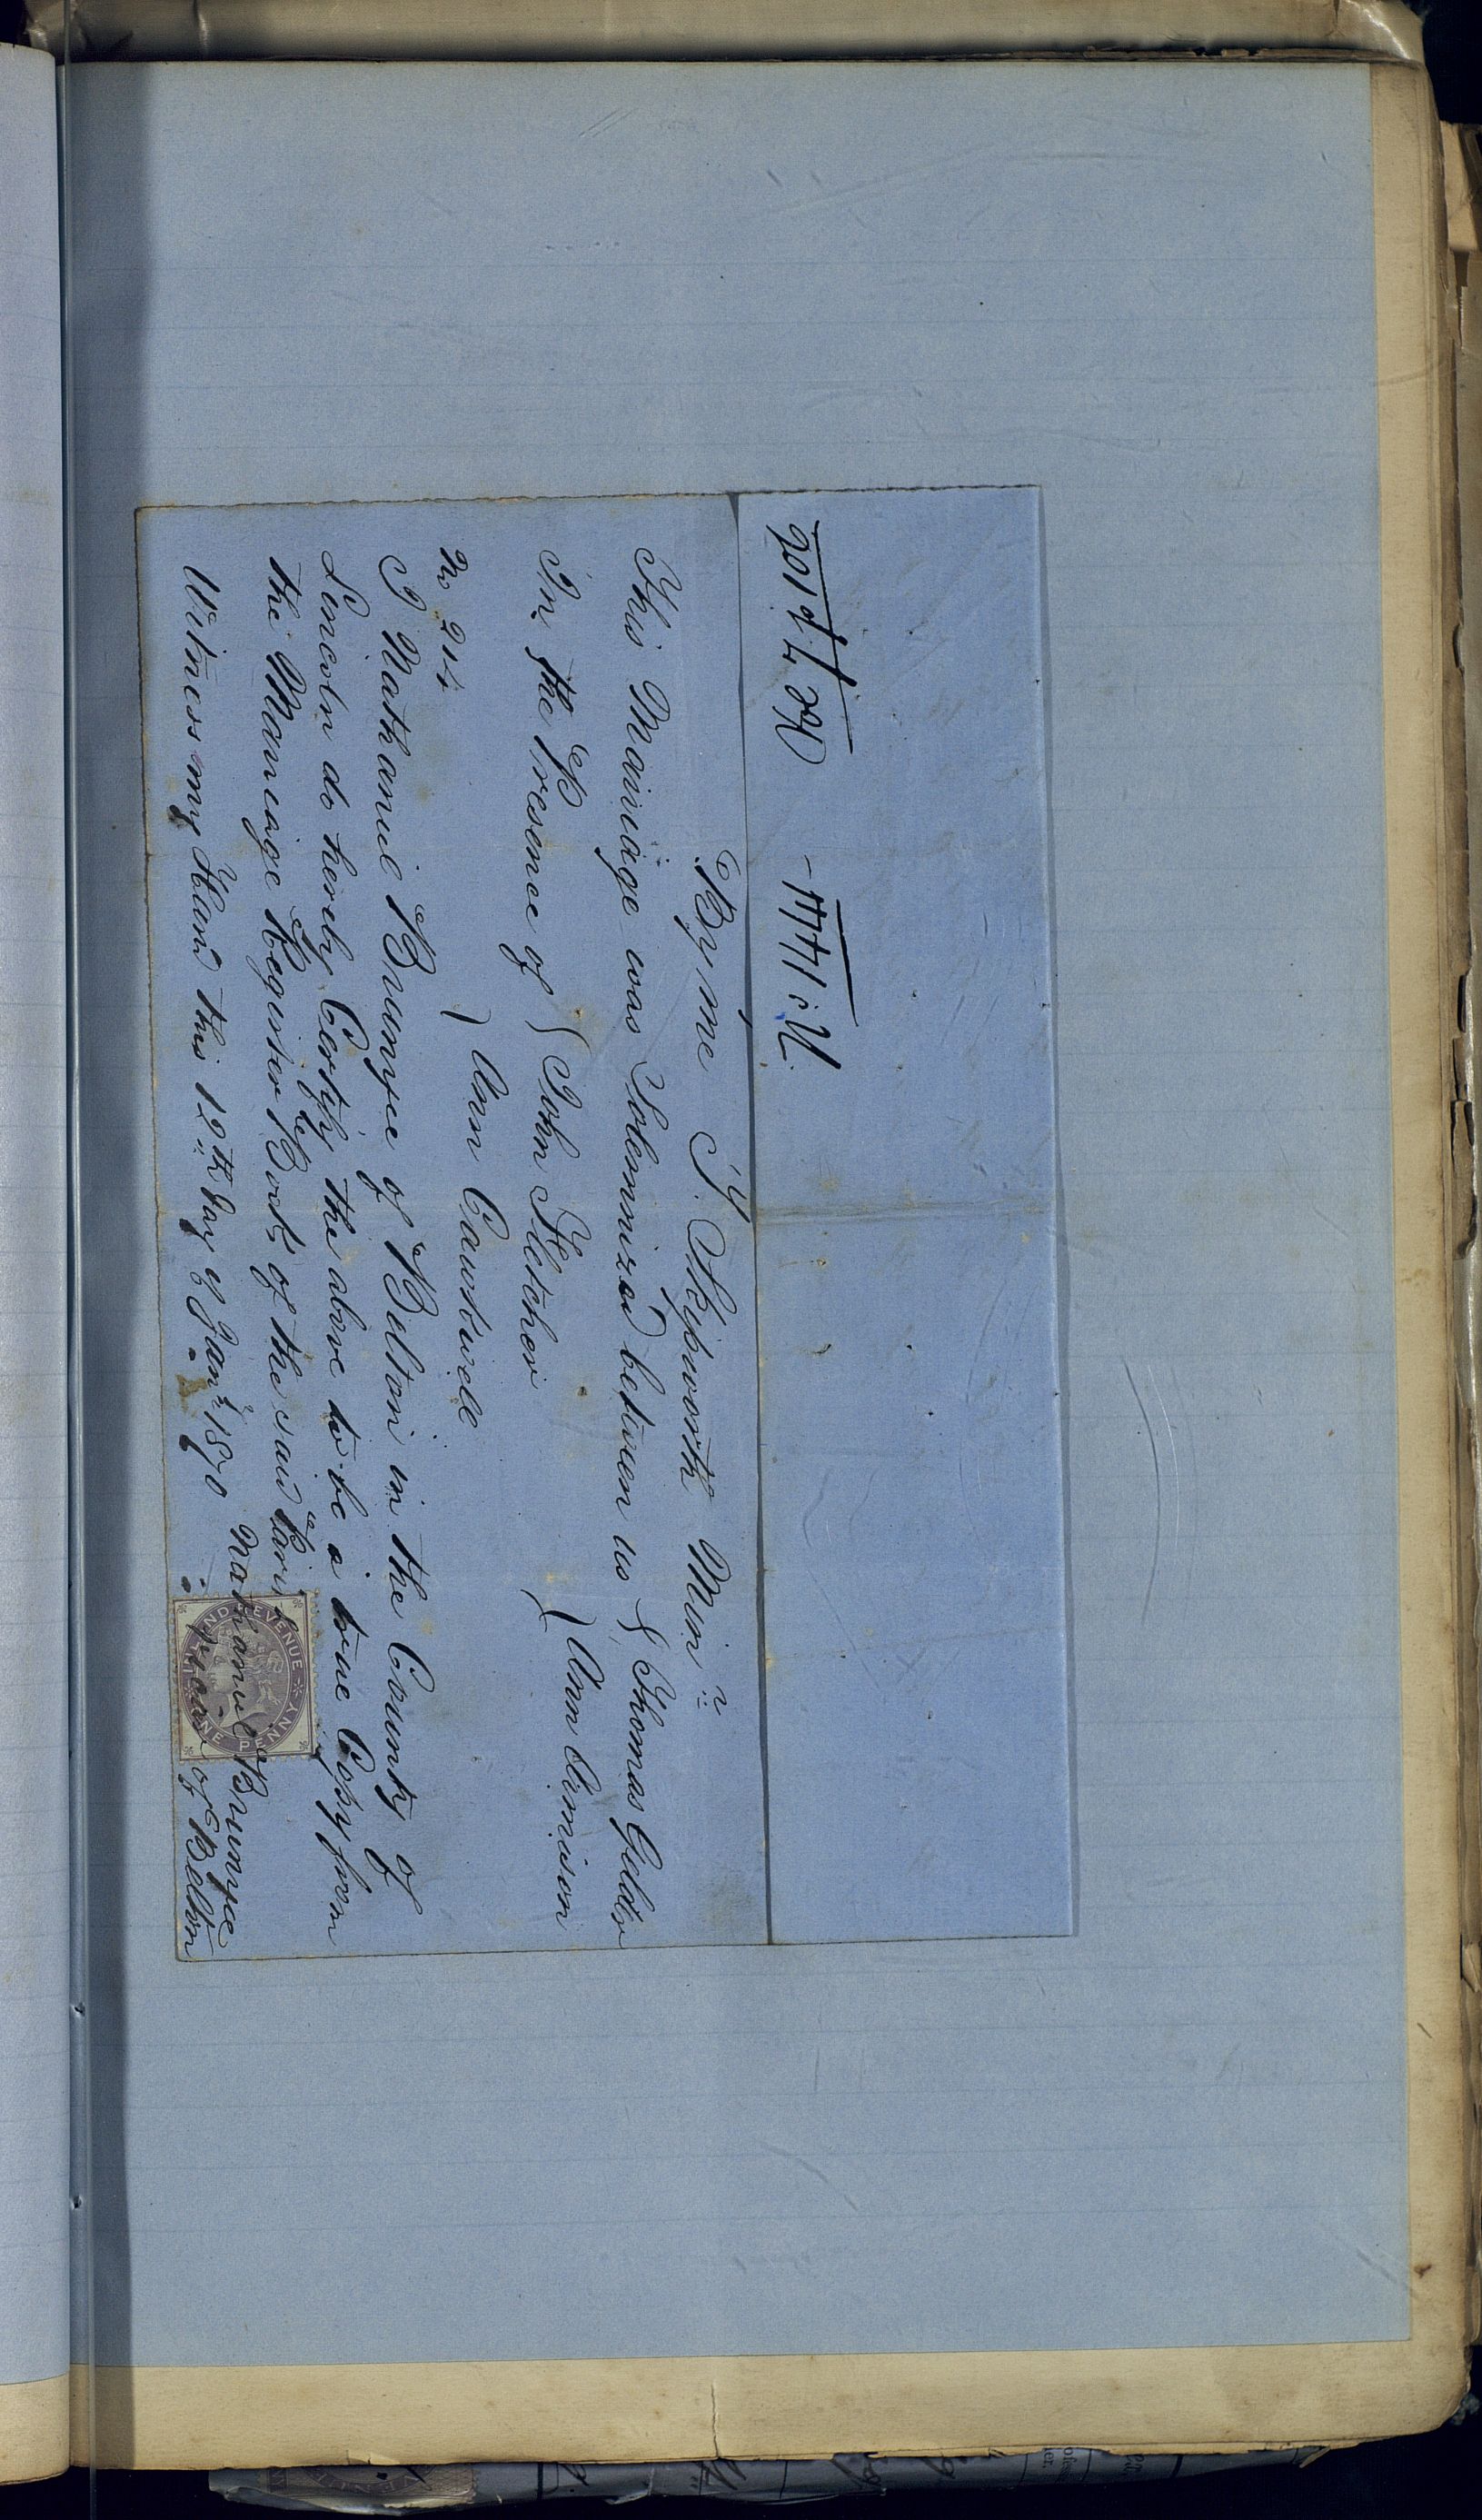 By me T. Skipworth Minr
This Marriage was Solemnized between us { Thomas Gelder
{ Ann Arnison
In the Presence of { John Fletcher
} Ann Cawtwell
No 214
I Nathaniel Brunyee of Belton in the County of
Lincoln do hereby Certify the above to be a true Copy from
the Marriage Register Book of the said Parish
Witness my Hand this 12th Day of Jany 1870
Nathaniel Brunyee
of Belton
INLAND REVENUE
ONE PENNY